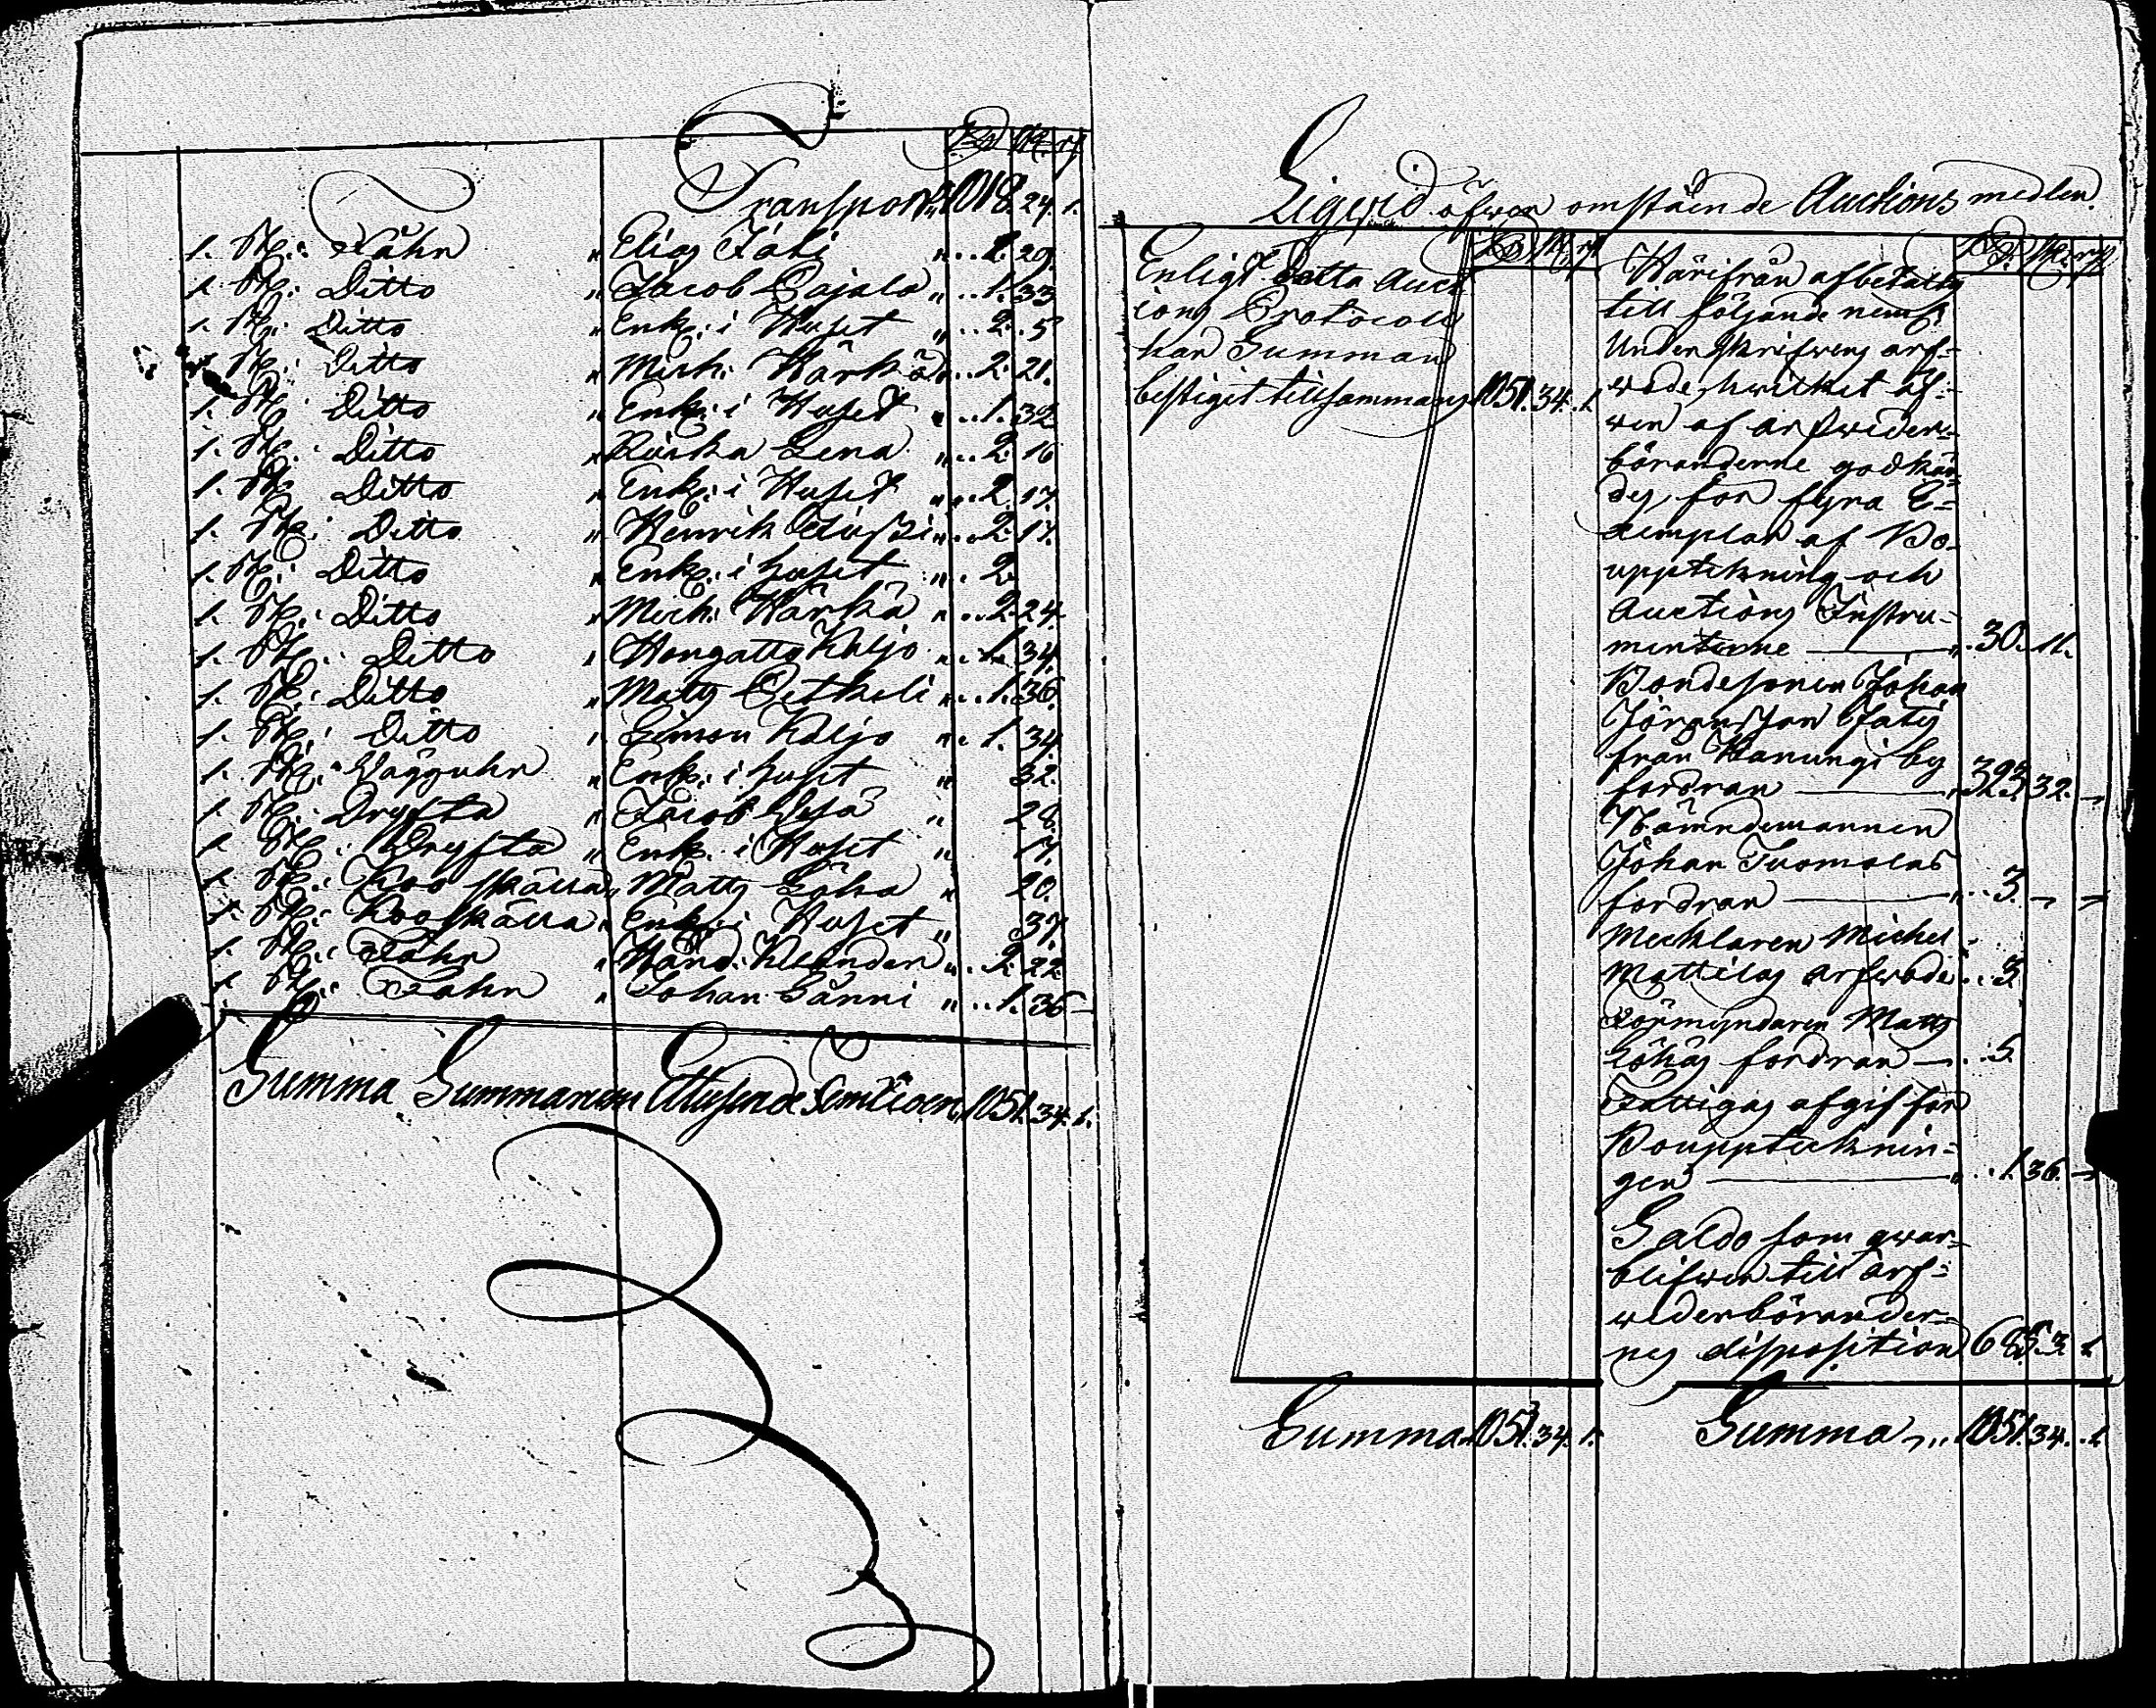 Transport 1018. 24. 1.
1. St: Fåhr " Elias Jåli " 1. 29.
1. St: Ditto " Jacob Pajala " 1. 33
1. St: Ditto " Enk: i Huset " 2. 5
1. St: Ditto " Mich: Härkä 2. 21.
1. St: Ditto " Enk: i Huset " 1. 32.
1. St: Ditto " Lena " 2. 16
1. St: Ditto " Enk: i Huset " 2. 17.
1. St: Ditto " Henrik " 2. 17.
1. St: Ditto " Enk: i huset " 2.
1. St: Ditto " Mich: Härkä " 2. 24.
1. St: Ditto " Kaljo " 1. 34.
1. St: Ditto " Matts Pitkeli " 1. 36.
1. St: Ditto " Simon Kaljo " 1. 34.
1. St: Wägguhr " Enk: i huset " 32.
1. St: Dryfta " Jacob " 28.
1. St: Dryfta " Enk: i Huset " 17.
1. St: Kooskälla " Matts Löha " 20.
1. St: Kooskälla " Enk: i Huset " 37.
1. St: Fåhr " Hand: " 2. 22.
1. St: Fahr " Johan Sänni " 1. 36 –
Summa Summarum Ettusende femtioen 1051. 34. 1.
Liqvid öfwer omstående Auctions medlen.
Enligt detta Auct
ions Protocoll
har Summan
bestiget tillsammans 1051. 34. 1.
Summa 1051. 34. 1.
Härifrån afbetalts
till följande neml:
Underskrifwens arf-
wode, hwilket äf-
wen af arfweder-
böranderne godkän-
des, för fyra E-
xemplar af Bo-
uppteckning och
Auctions Instru-
menterne " 30. 11.
Bondesonen Johan
Jöransson Jatis
från Wanungi by
fordran " 323 32. –
Nämndemannen
Johan Tuomolas
fordran " 3. – –
Mecklaren Michel
Mattilas arfwode 3
Förmyndaren Matts
Löhas fordran – 5.
Fattigas afgift för
Bouppteknin-
gen " 1. 36. –
Saldo som qwar-
blifwer till arf-
wederböander-
nes disposition 685. 3 1
Summa " 1051. 34. 1